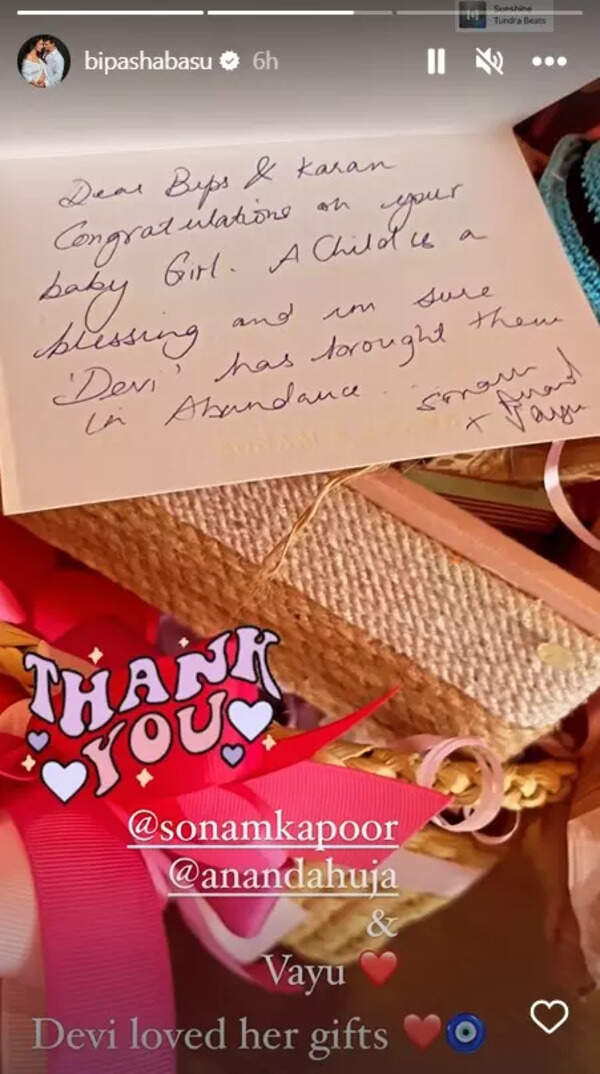 Sunshine
Tundra Beats
bipashabasu 6h
Dear Bips & Karan
Congratulations on your
baby Girl. A Child is a
blessing and im sure
'Devi' has brought them
in Abundance.
Sonam
Anand
x Vayu
THANK
YOU
@sonamkapoor
@anandahuja
&
Vayu ❤️
Devi loved her gifts ❤️🧿